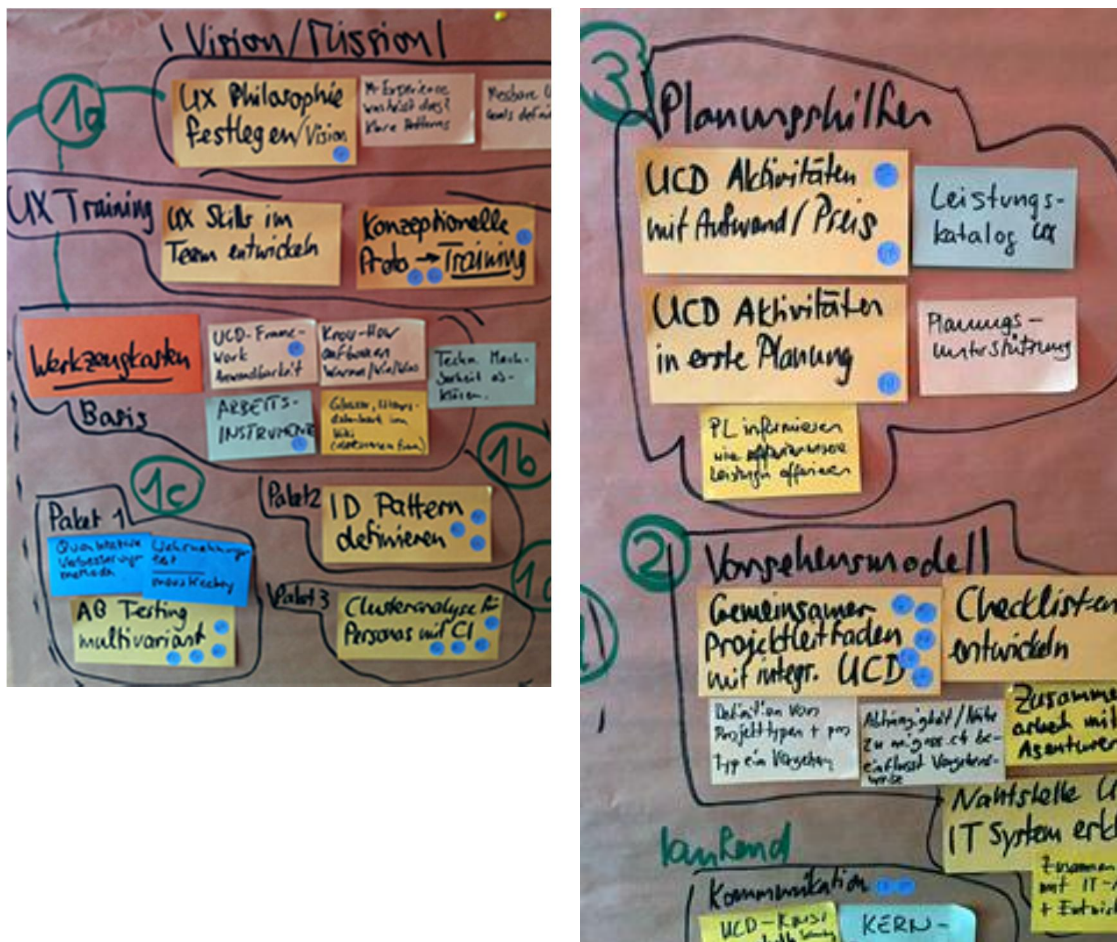 Vision/Mission
1a
UX Philosophie
festlegen/Vision
M-Experience
was heisst das?
klare Patterns
Messbare
UX Training
UX Skills im
Team entwickeln
Konzeptionelle
Proto → Training
Werkzeugkasten
UCD-Frame-
work
Anwendbarkeit
Know-How
aufbauen
Warum/Wie/Was
Techn. Mach-
barkeit ab-
klären.
Basis
ARBEITS-
INSTRUMENTE
Glossar,
Wiki
1b
1c
Paket 1
Paket 2
ID Pattern
definieren
Quantitative
Verbesserungs-
methode
Wahrnehmungs-
test
mousetracking
AB Testing
multivariant
Paket 3
Clusteranalyse für
Personas mit CI
3
Planungshilfen
UCD Aktivitäten
mit Aufwand/Preis
Leistungs-
katalog UX
UCD Aktivitäten
in erste Planung
Planungs-
unterstützung
PL informieren
wie
Leistungen offerieren
2
Vorgehensmodell
Gemeinsamer
Projektleitfaden
mit integr. UCD
Checklisten
entwickeln
Definition von
Projekttypen + pro
Typ ein Vorgehen
Abhängigkeit/Nähe
zu migros.ch be-
einflusst Vorgehens-
weise
Zusammen
arbeit mit
Agenturen
Nahtstelle
IT System
laufend
Zusammen
mit IT-
+ Entwick
Kommunikation
UCD-
KERN-